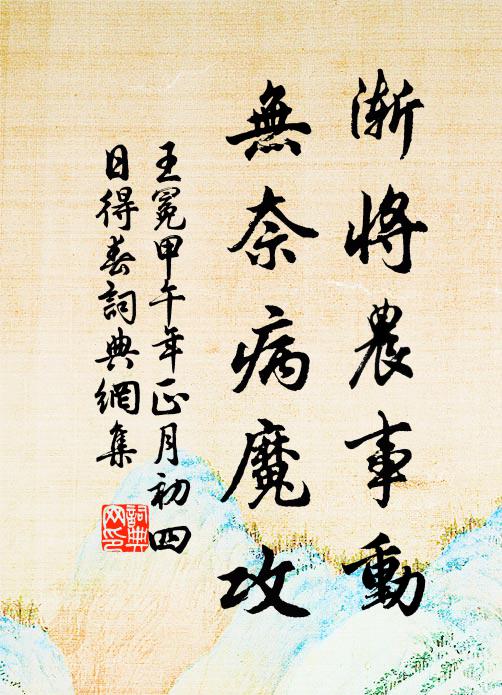 漸將農事動
無奈病魔攻
王冕甲午年正月初四
日得春詞典網集
詞典
网印